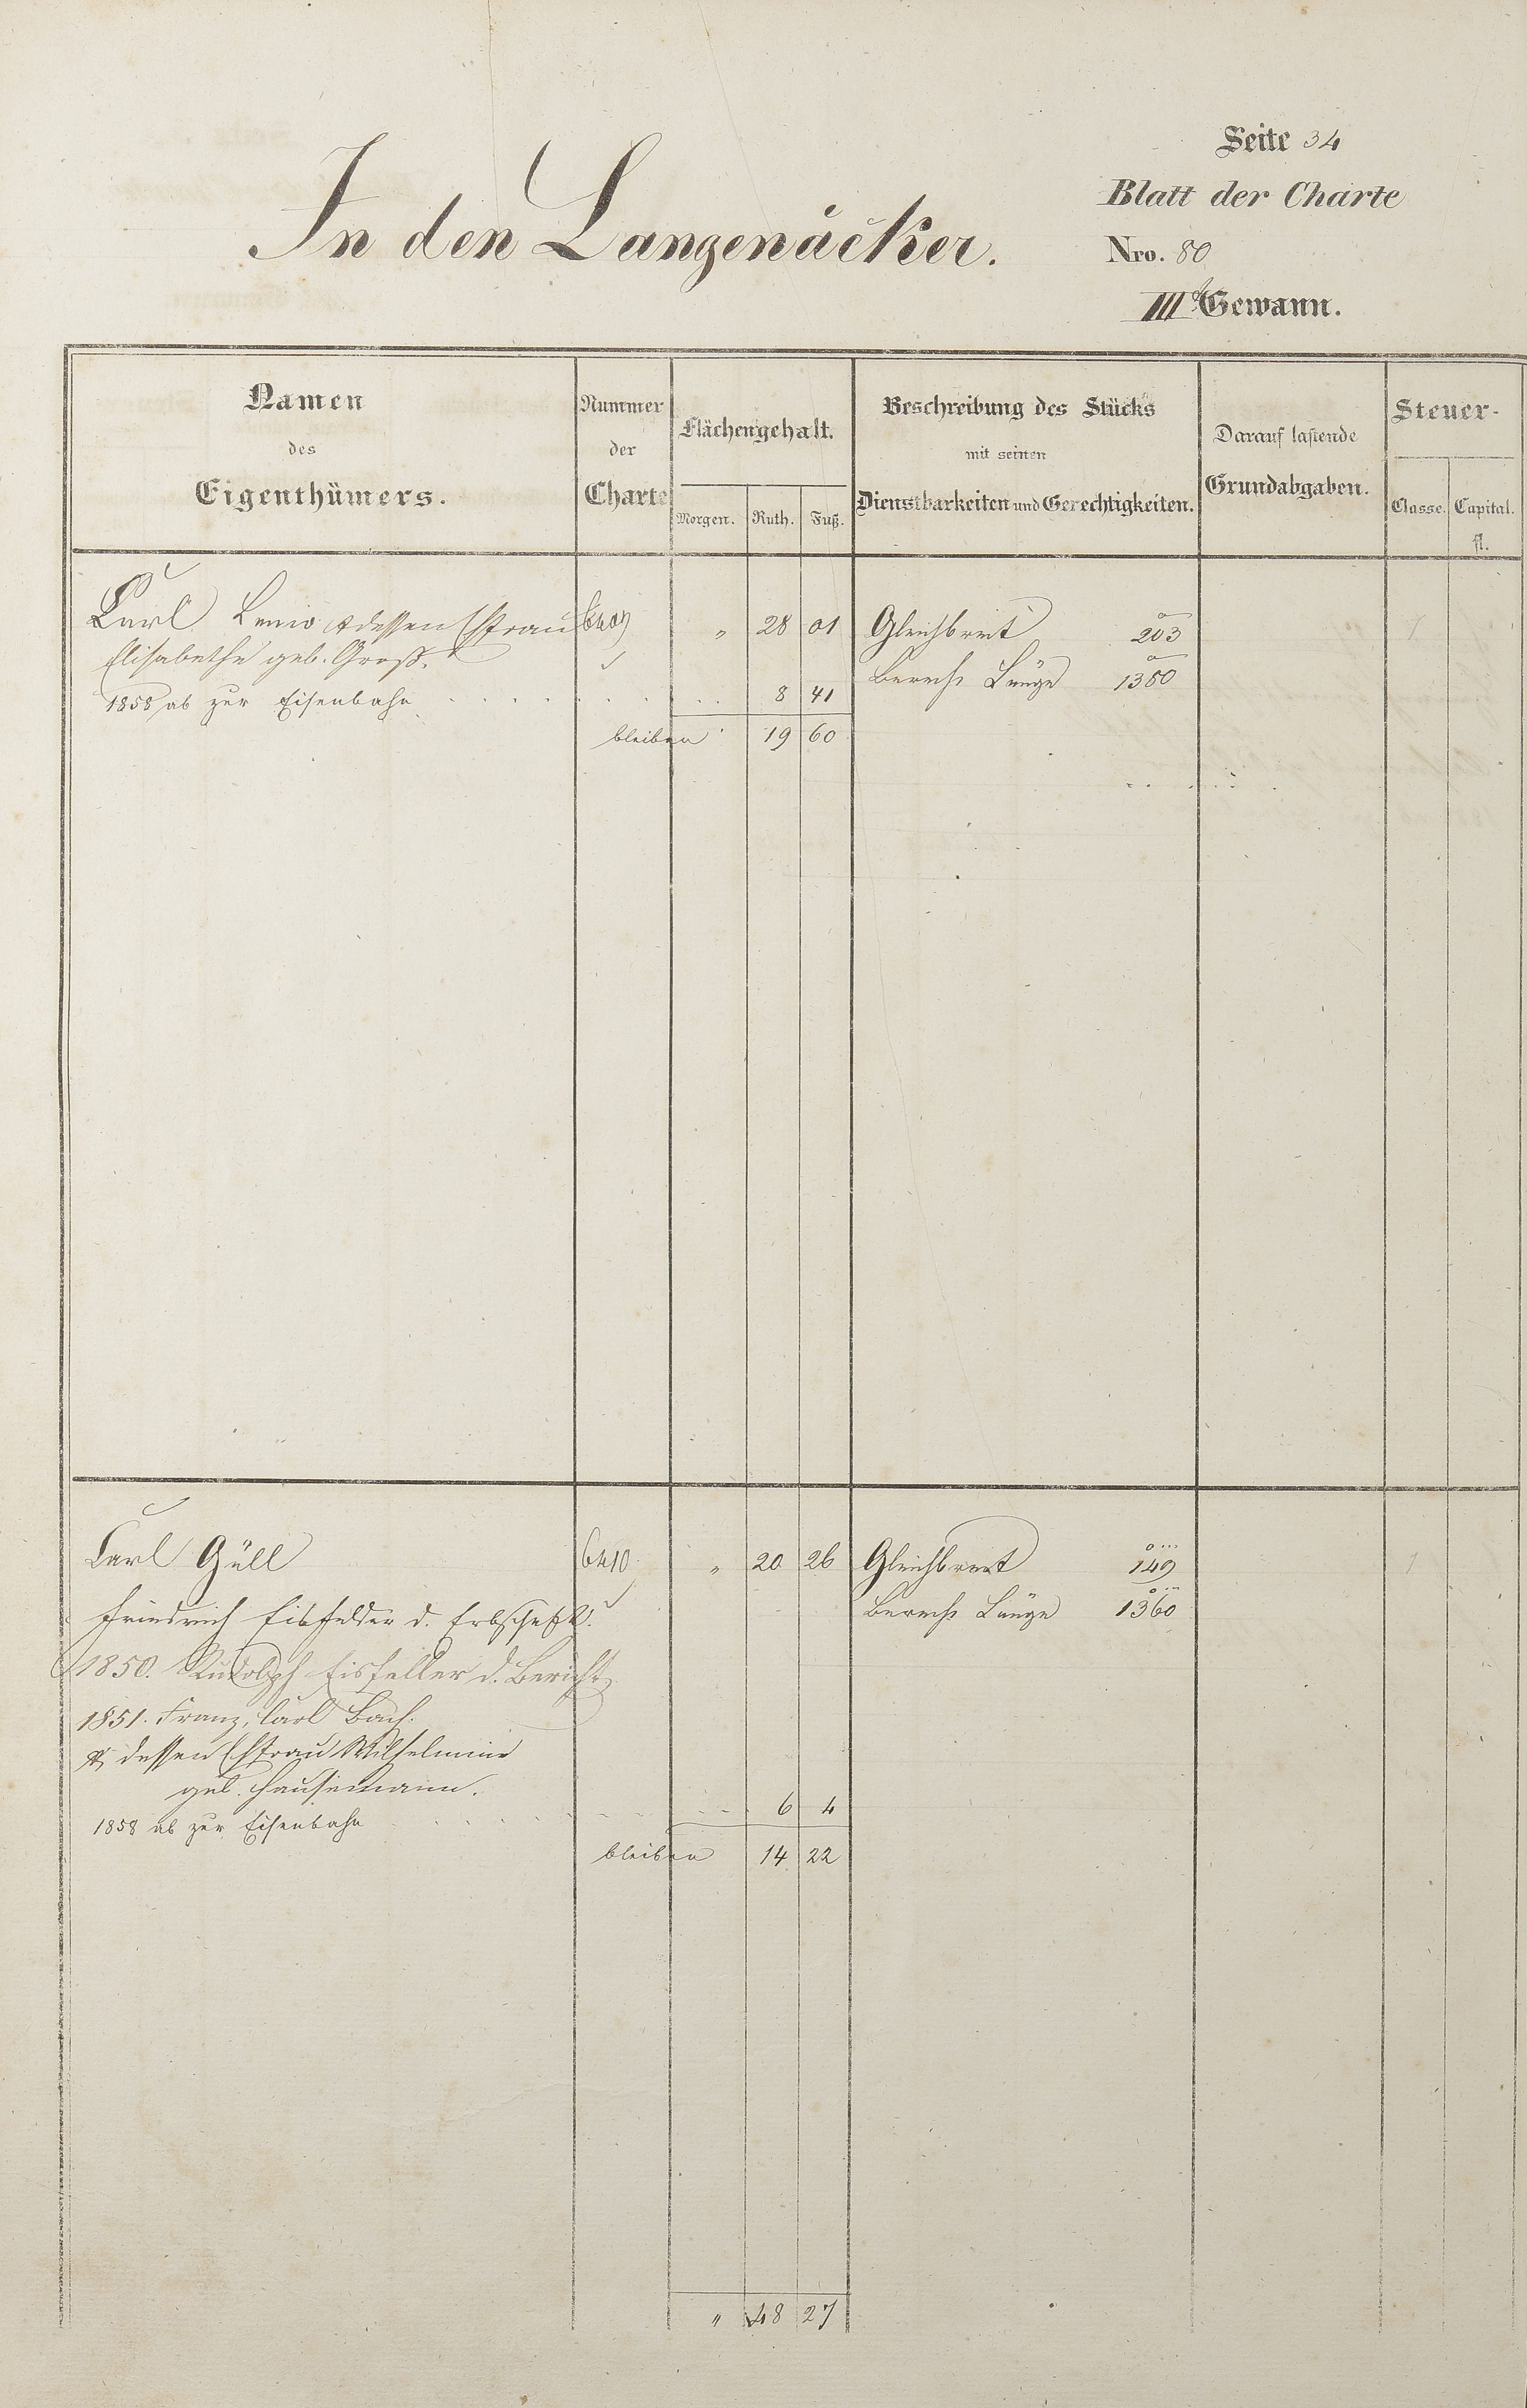 Seite 34
Blatt der Charte
In den Langenäcker.
Nro. 80
III Gewann.
Namen des Eigenthümers.
Nummer der Charte
Flächengehalt.
Morgen. Ruth. Fuß.
Beschreibung des Stücks mit seinen Dienstbarkeiten und Gerechtigkeiten.
Darauf lastende Grundabgaben.
Steuer-
Classe. Capital. fl.
Carl & dessen Ehfrau 6409 " 28 01 Gleichbreit 203 1
Elisabetha geb. Groß. Länge 1380
1858 ab zur Eisenbahn . . . . . . . . 8 41
bleiben 19 60
Carl Güll 6410 " 20 26 Gleichbreit 149 1
Friedrich Eisfelder d. Erbschaft. Länge 1360
1850. Rudolph Eisfeller d. Bericht
1851. Franz, Carl Bach.
& dessen Ehfrau Wilhelmine
geb. Hausemann.
1858 ab zur Eisenbahn . . . . . . . . 6 4
bleiben 14 22
" 48 27